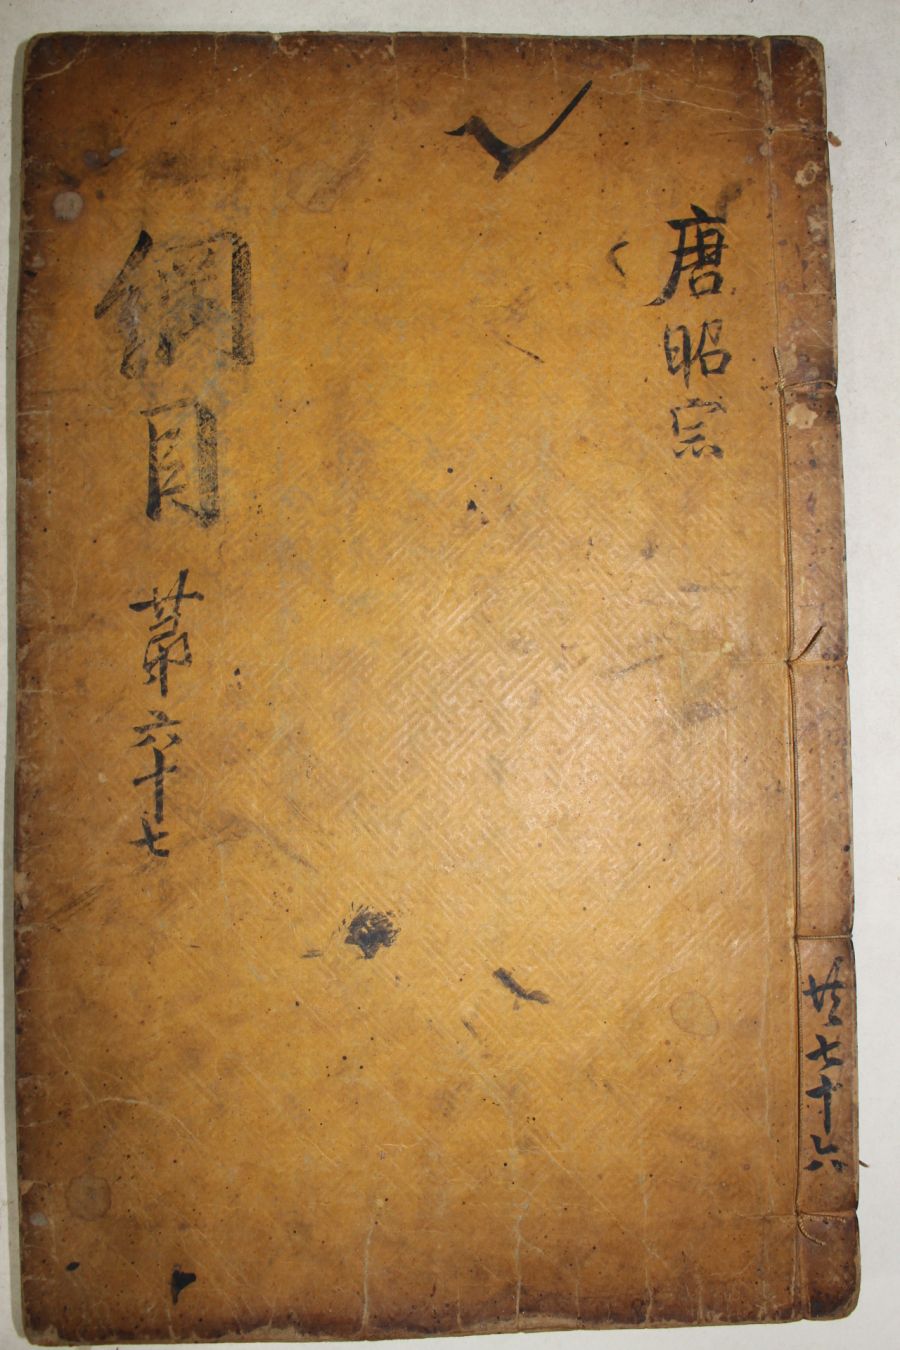 共七十六
唐昭宗
綱目 苐六十七